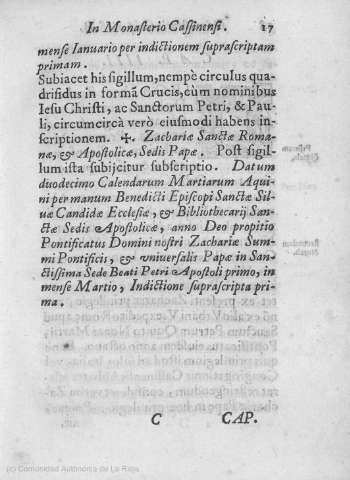 In Monasterio Cassinensi. 17
mense Ianuario per indictionem suprascriptam
primam.
Subiacet his sigillum, nempè circulus qua-
drifidus in formã Crucis, cùm nominibus
Iesu Christi, ac Sanctorum Petri, & Pau-
li, circumcircà verò eiusmodi habens in-
scriptionem. ✠. Zachariæ Sanctæ Roma-
næ, & Apostolicæ, Sedis Papæ. Post sigil-
lum ista subijcitur subscriptio. Datum
duodecimo Calendarum Martiarum Aqui-
ni per manum Benedicti Episcopi Sanctæ Sil-
uæ Candidæ Ecclesiæ, & Bibliothecarij San-
ctæ Sedis Apostolicæ, anno Deo propitio
Pontificatus Domini nostri Zachariæ Sum-
mi Pontificis, & vniuersalis Papæ in San-
ctissima Sede Beati Petri Apostoli primo, in
mense Martio, Indictione suprascripta pri-
ma.
C CAP.
(c) Comunidad Autónoma de La Rioja